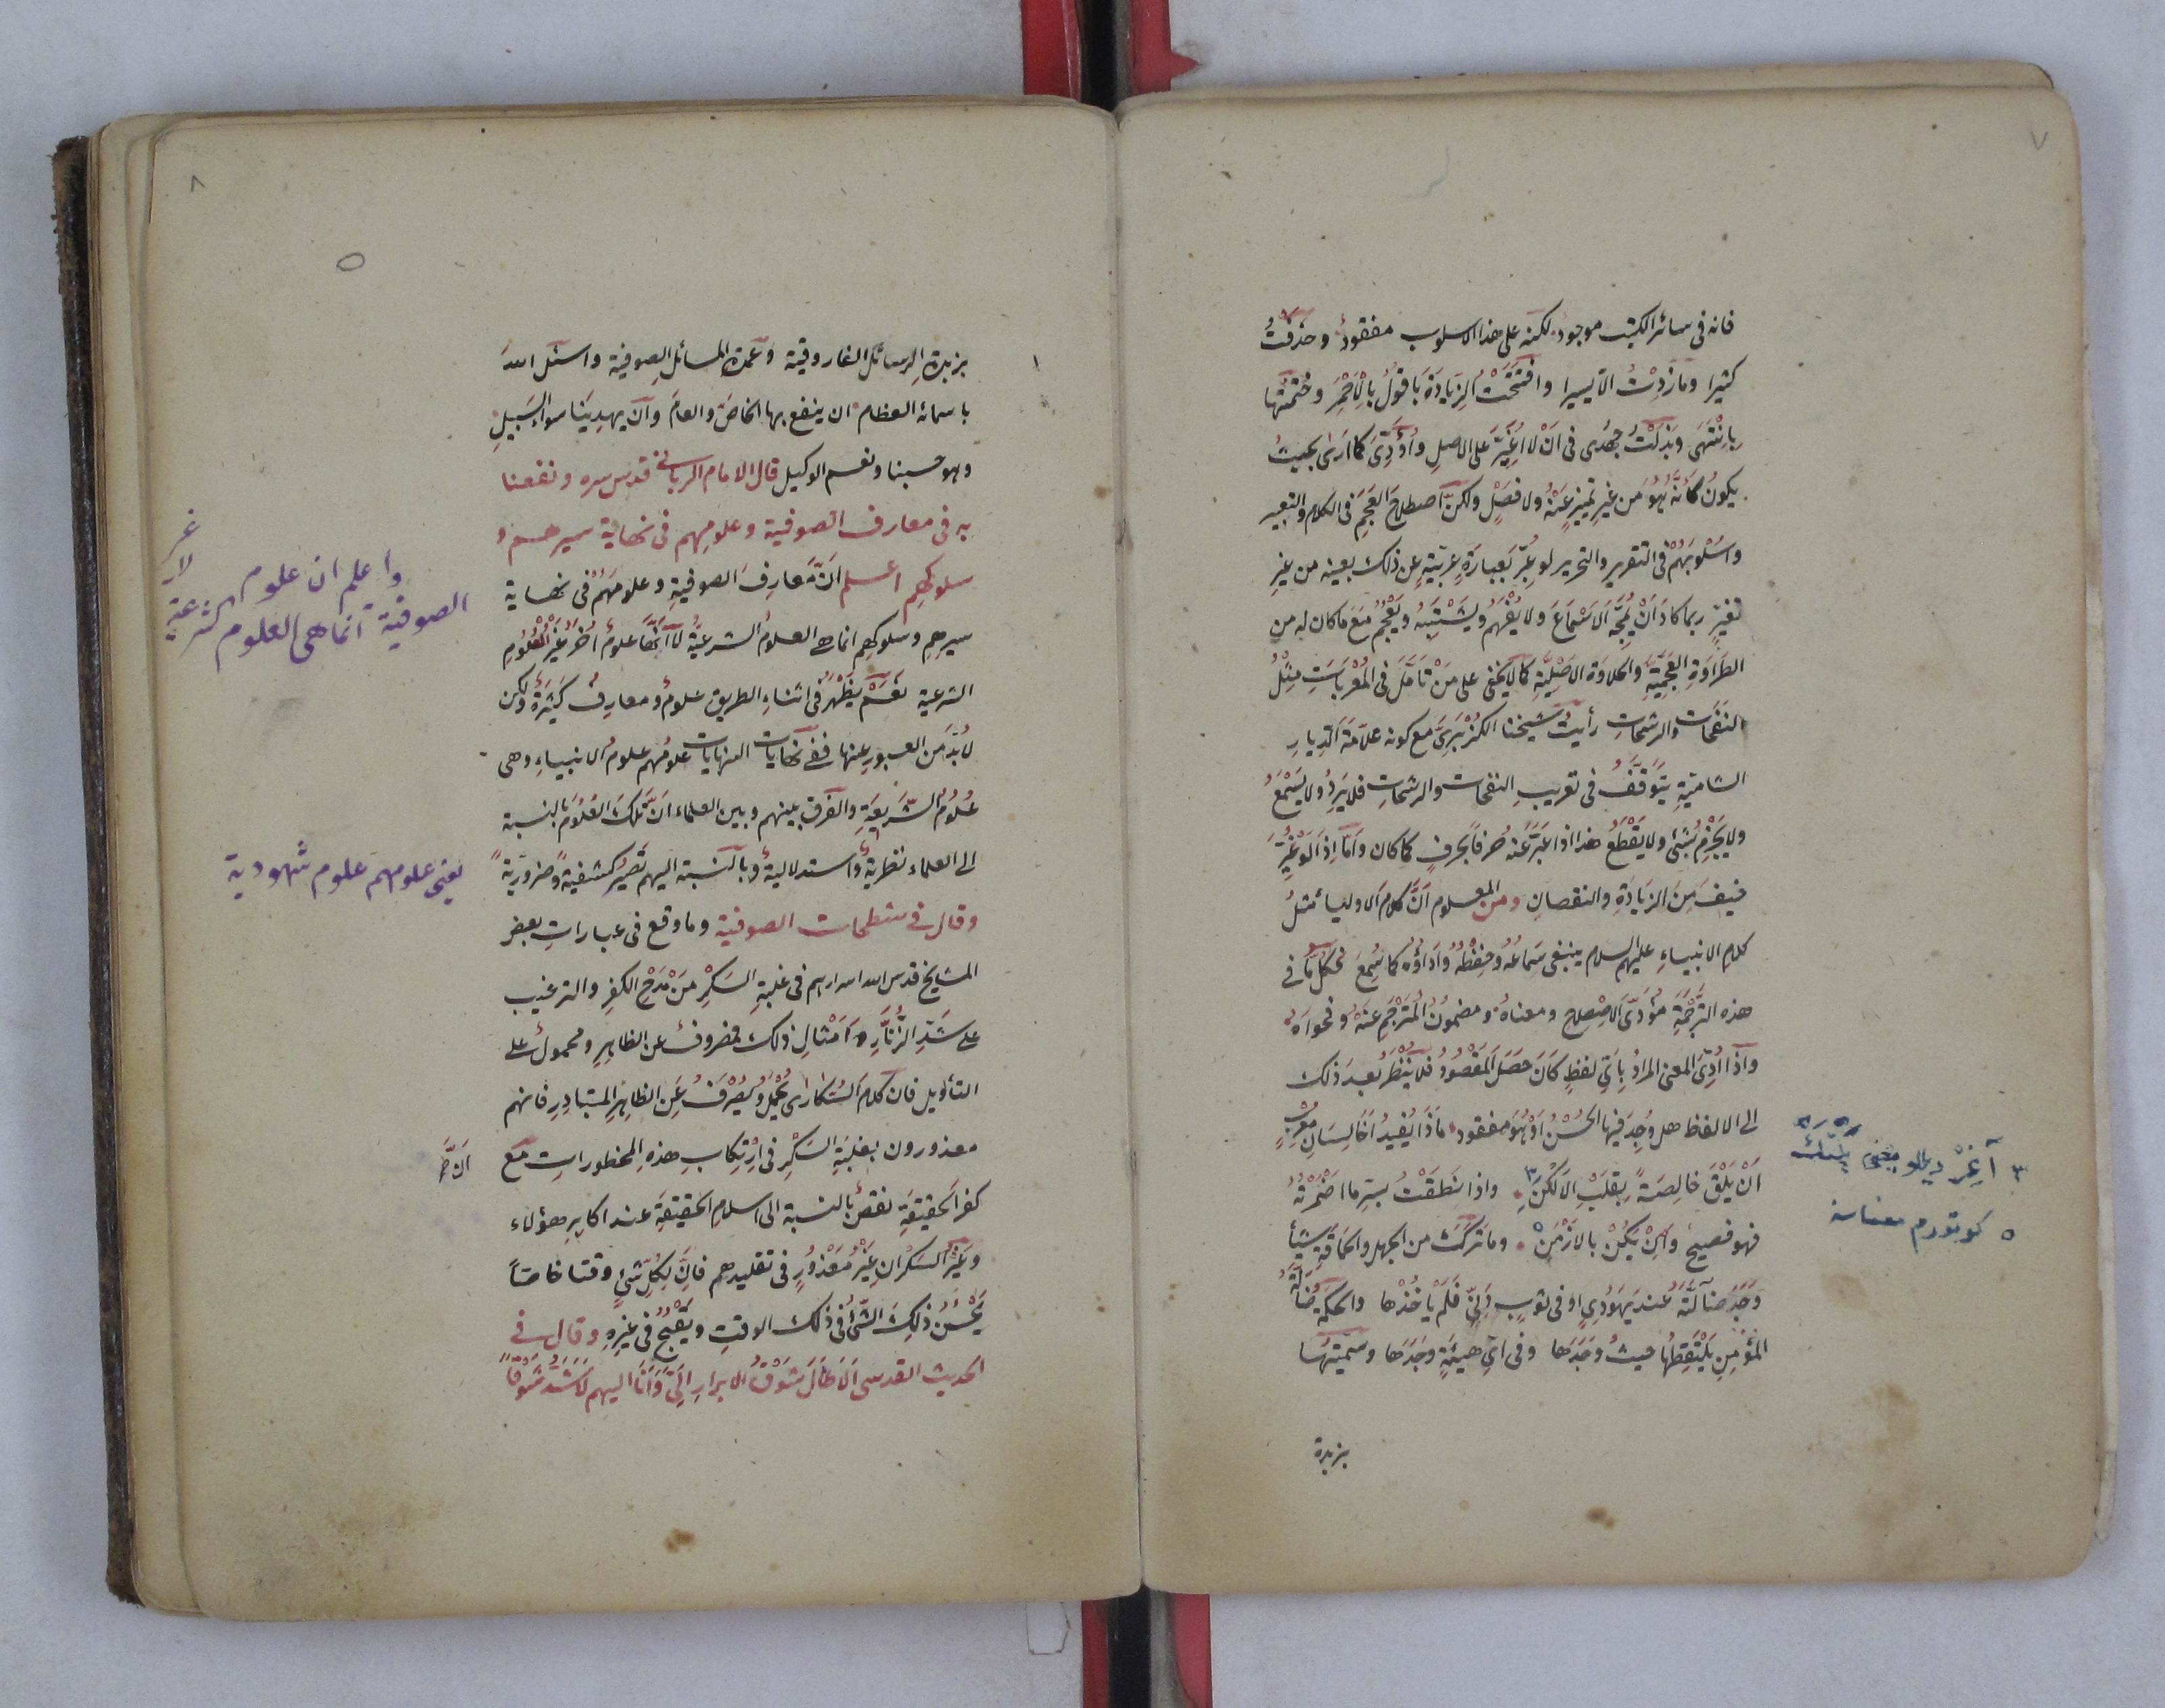 ٧
فانه فى سائر الكتب موجود لكنه على هذا الاسلوب مفقود وحذفت
كثيرا وما زدت الا يسيرا وافتتحت الزيادة باقول بالاحمر وختمتها
بانتهى وبذلت جهدى فى ان لا اغير على الاصل واؤدى كما ارى بحيث
يكون كأنه هو من غير تميز عنه ولا فصل ولكن اصطلاح العجم فى الكلام والتعبير
واسلوبهم فى التقرير والتحرير لو عبر بعبارة عربية عن ذلك بعينه من غير
تغير ربما كاد ان يمجه الاسماع ولا يفهم ويشتبه ويعجم مع ما كان له من
الطراوة العجمية والحلاوة الاصلية كما لا يخفى على من تأمل فى المعربات مثل
النفحات والرشحات رأيت شيخنا الكزبرى مع كونه علامة الديار
الشامية يتوقف فى تعريب النفحات والرشحات فلا يرد ولا يسمع
ولا يجزم بشئ ولا يقطع هذا اذا عبر عنه حرفا بحرف كما كان واما اذا لو غير
فيف من الزيادة والنقصان ومن المعلوم ان كلام الاولياء مثل
كلام الانبياء عليهم السلام ينبغى سماعه وحفظه واداؤه كما سمع فكل ما فى
هذه الترجمة مؤدى الاصطلاح ومعناه ومضمون المترجم عنه وفحواه
واذا ادى المعنى المراد باى لفظ كان حصل المقصود فلا ينظر بعد ذلك
الى الالفاظ هل وجد فيها الحسن او هو مفقود ماذا يفيد اخا لسان معرب
ان يلق خالصة بقلب الالكن واذا نطقت بستر ما اضمرته
فهو فصيح وان يكن بالارمن وما تركت من الجهل والحماقة شيأ
وجد ضالته عند يهودى او فى ثوب دنى فلم يأخذها والحكمة ضالة
المؤمن يلتقطها حيث وجدها وفى اى هيئة وجدها وسميتها
بزبدة
٣
٥ كوتورم معناسنه
٨
بزبدة الرسائل الفاروقية وعمدة المسائل الصوفية واسئل الله
باسمائه العظام ان ينفع بها الخاص والعام وان يهدينا سواء السبيل
وهو حسبنا ونعم الوكيل قال الامام الربانى قدس سره ونفعنا
به فى معارف الصوفية وعلومهم فى نهاية سيرهم و
سلوكهم اعلم ان معارف الصوفية وعلومهم فى نهاية
سيرهم وسلوكهم انما هى العلوم الشرعية لا انها علوم اخر غير العلوم
الشرعية نعم يظهر فى اثناء الطريق علوم ومعارف كثيرة ولكن
لابد من العبور عنها ففى نهايات النهايات علومهم علوم الانبياء وهى
علوم الشريعة والفرق بينهم وبين العلماء ان تلك العلوم بالنسبة
الى العلماء نظرية واستدلالية وبالنسبة اليهم تصير كشفية وضرورية
وقال فى شطحات الصوفية وما وقع فى عبارات بعض
المشايخ قدس الله اسرارهم فى غلبة السكر من مدح الكفر والترغيب
على شد الزنار وامثال ذلك فمصروف عن الظاهر ومحمول على
التأويل فان كلام السكارى يحمل ويصرف عن الظاهر المتبادر فانهم
معذورون بغلبة السكر فى ارتكاب هذه المحظورات مع
كفر الحقيقة نقص بالنسبة الى اسلام الحقيقة عند اكابر هؤلاء
وغير السكران غير معذور فى تقليدهم فان لكل شئ وقتا خاصا
يحسن ذلك الشئ فى ذلك الوقت ويقبح فى غيره وقال فى
الحديث القدسى الا طال شوق الابرار الى وانا اليهم لاشد شوقا
واعلم ان علوم
الصوفية انما هى العلوم الشرعية
لا غير
يعنى علومهم علوم شهودية